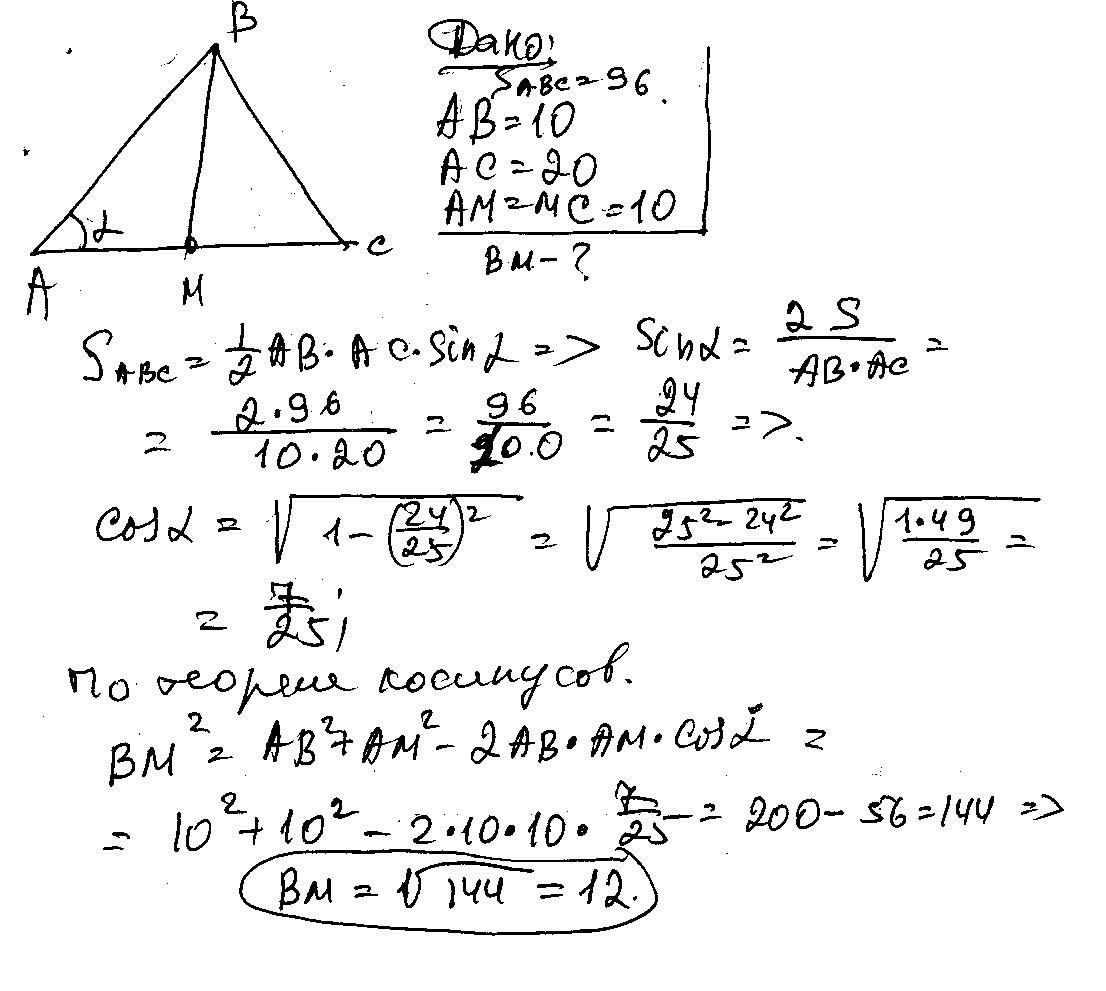 B
Дано:
S_ABC = 96.
AB = 10
AC = 20
AM = MC = 10
BM - ?
α
A
M
C
S_ABC = 1/2 AB · AC · sin α => sin α = 2S / (AB · AC) =
= (2 · 96) / (10 · 20) = 96 / 100 = 24/25 =>.
cos α = √(1 - (24/25)²) = √((25² - 24²) / 25²) = √((1 · 49) / 25) =
= 7/25;
По теореме косинусов.
BM² = AB² + AM² - 2AB · AM · cos α =
= 10² + 10² - 2 · 10 · 10 · 7/25 = 200 - 56 = 144 =>
BM = √144 = 12.